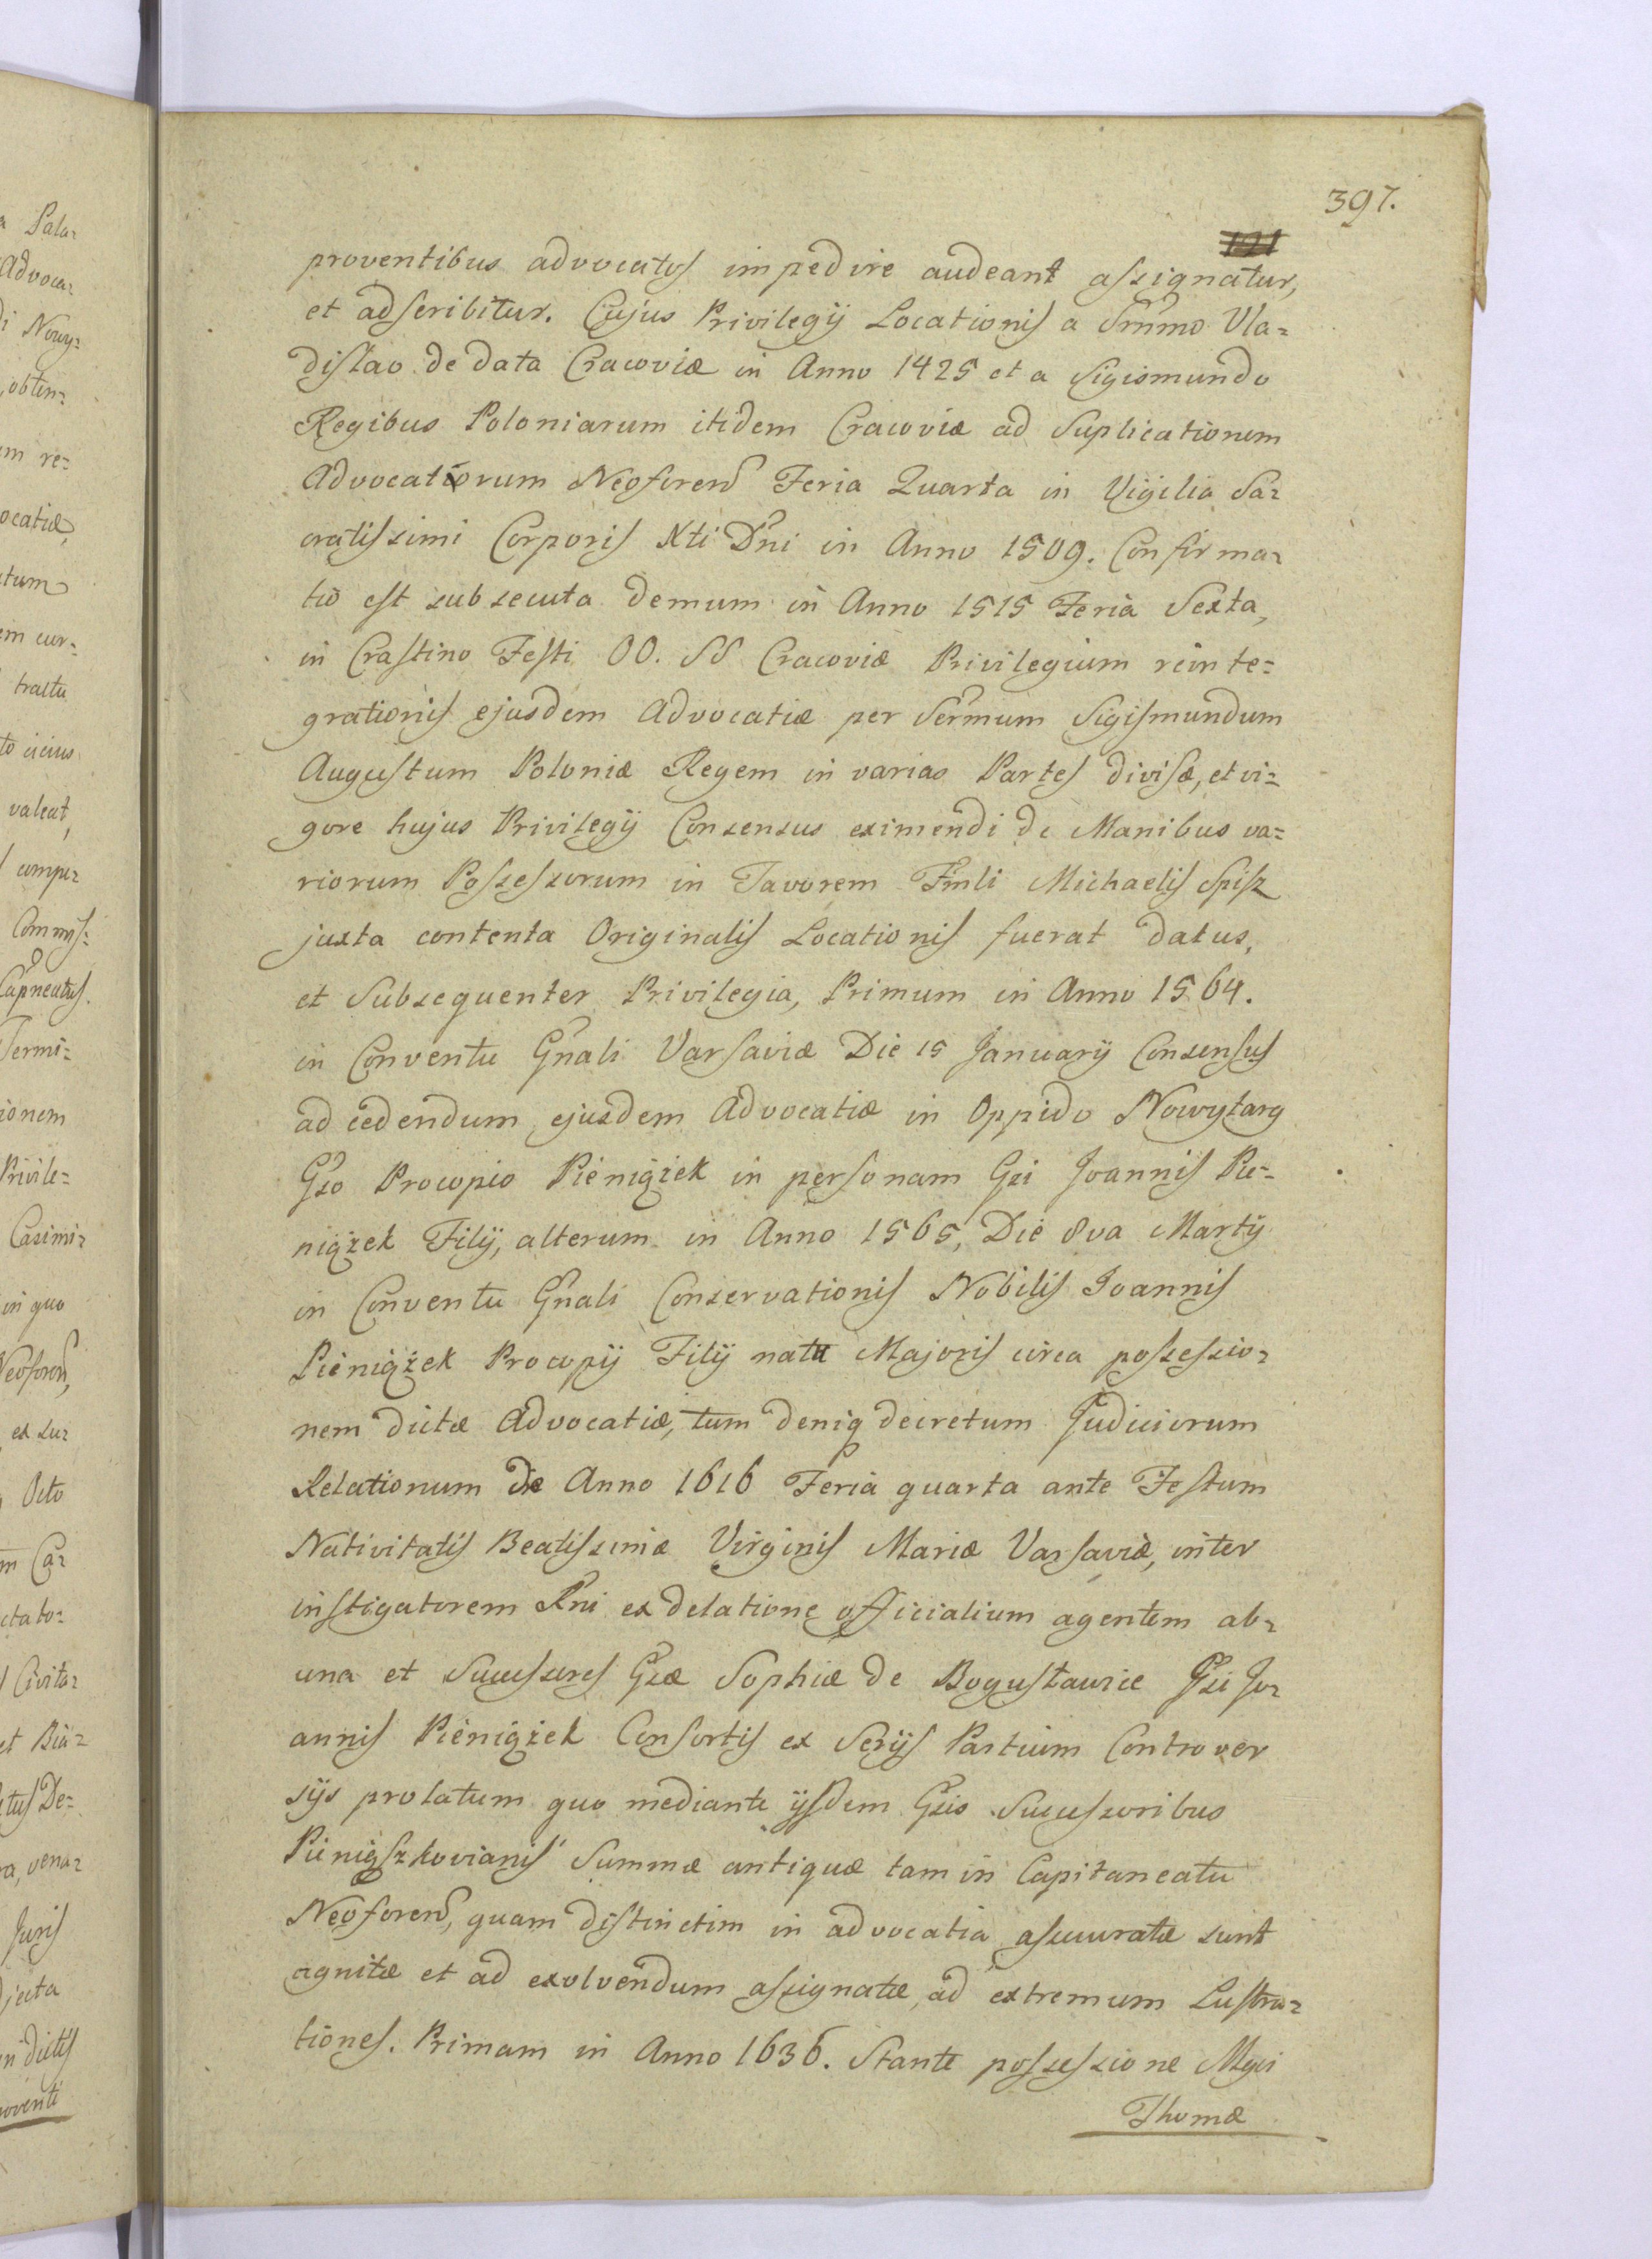 397.
121
proventibus advocatos impedire audeant assignatur,
et adscribitur. Cujus Privilegij Locationis a Srmmo Vla=
dislao de data Cracoviæ in Anno 1425 et a Sigismundo
Regibus Poloniarum itidem Cracoviæ ad Suplicationem
Advocatorum Neoforen Feria Quarta in Vigilia Sa=
cratissimi Corporis Xti Dni in Anno 1509. Confirma=
tio est subsecuta demum in Anno 1515 Feria Sexta,
in Crastino Festi OO. SS Cracoviæ Privilegium reinte=
grationis ejusdem Advocatiæ per Sermum Sigismundum
Augustum Poloniæ Regem in varias Partes divisæ, et vi=
gore hujus Privilegij Consensus eximendi de Manibus va=
riorum Possessorum in Favorem Fmli Michaelis Spisz
juxta contenta Originalis Locationis fuerat datus,
et Subsequenter Privilegia, Primum in Anno 1564.
in Conventu Gnali Varsaviæ Die 15 Januarij Consensus
ad cedendum ejusdem Advocatiæ in Oppido Nowytarg
Gso Procopio Pieniążek in personam Gsi Joannis Pie=
niążek Filij, alterum in Anno 1565, Die 8va Martij
in Conventu Gnali Conservationis Nobilis Joannis
Pieniążek Procopij Filij natu Majoris circa possessio=
nem dictæ Advocatiæ, tum deniq decretum Judiciorum
Relationum de Anno 1616 Feria quarta ante Festum
Nativitatis Beatissimæ Virginis Mariæ Varsaviæ, inter
instigatorem Rni ex delatione officialium agentem ab=
una et Sucessores Gsæ Sophiæ de Bogusławice Gsi Jo=
annis Pieniążek Consortis ex Serijs Partium Controver
sijs prolatum quo mediante ijsdem Gsis Sucessoribus
Pieniąszkovianis Summæ antiquæ tam in Capitaneatu
Neoforen, quam distinctim in advocatia assecuratæ sunt
agnitæ et ad exolvendum assignatæ, ad extremum Lustra=
tiones. Primam in Anno 1636. Stante possessione Mgci
Thomæ